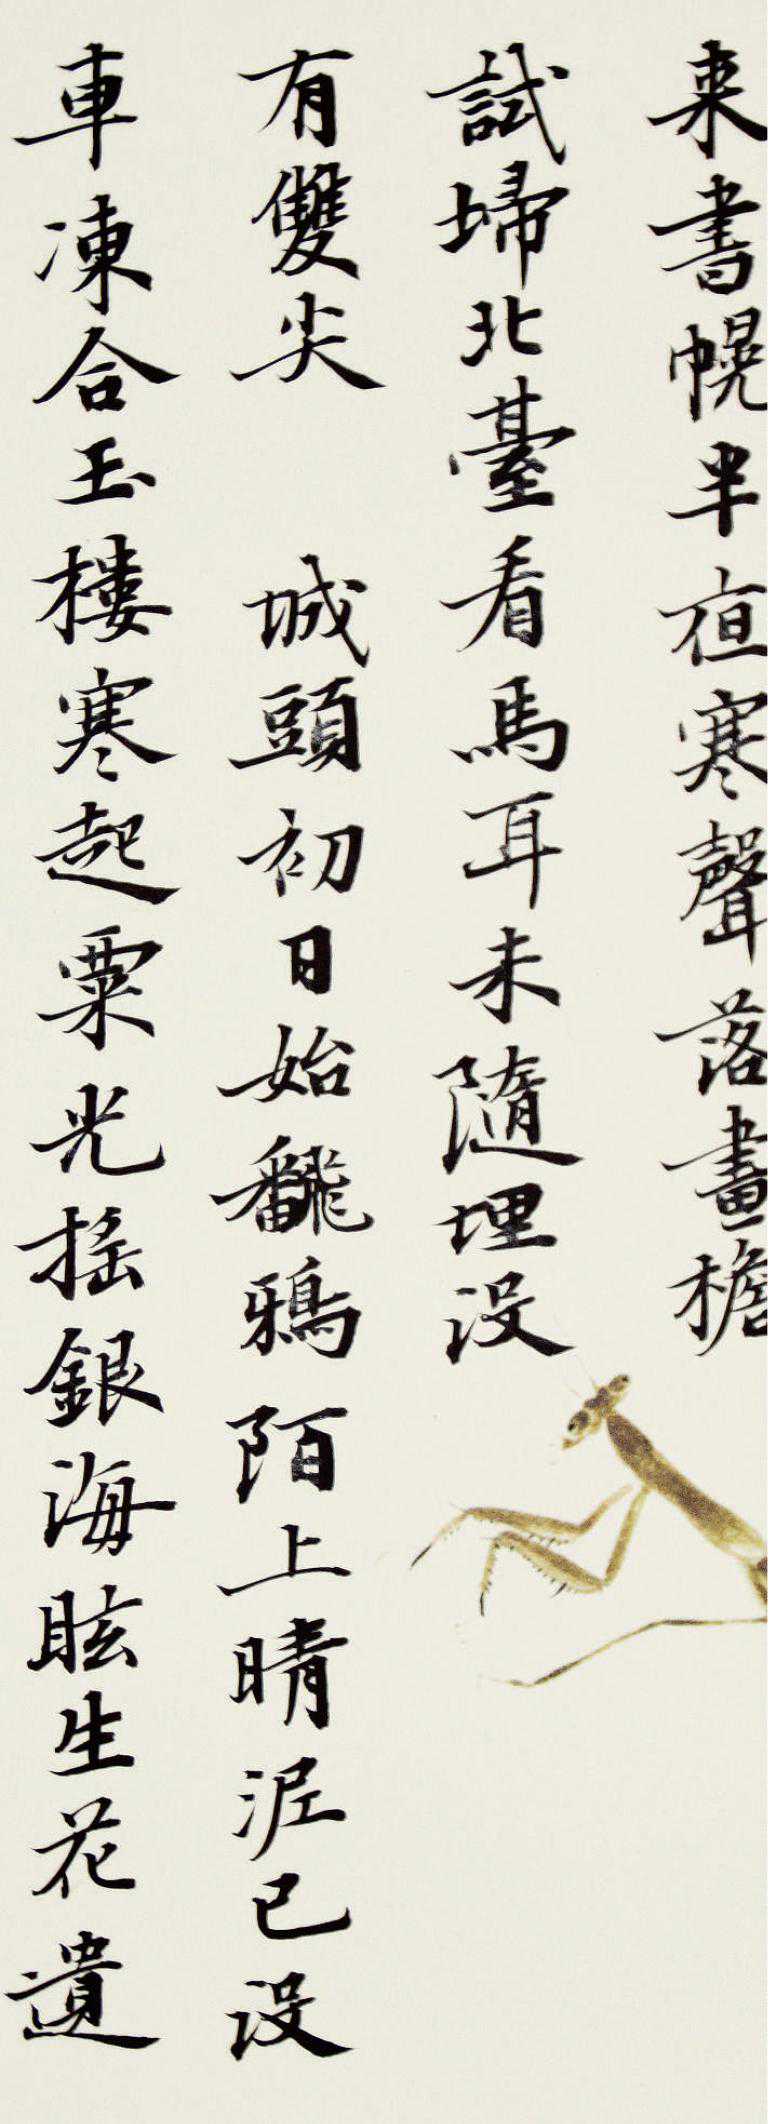 来書幌半夜寒聲落畫檐
試埽北臺看馬耳未隨埋没
有雙尖 城頭初日始飜鴉陌上晴泥已没
車凍合玉樓寒起粟光摇銀海眩生花遺